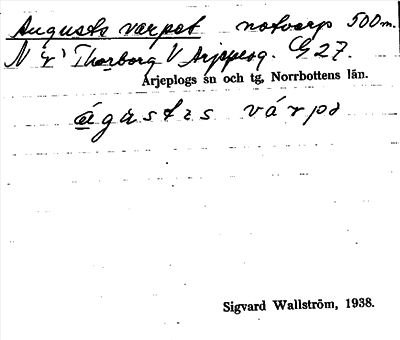 Augusts varpet notvarp 500 m.
N. Thorborg V Arjeplog. G 27.
Arjeplogs sn och tg, Norrbottens län.
águstəs várpə
Sigvard Wallström, 1938.